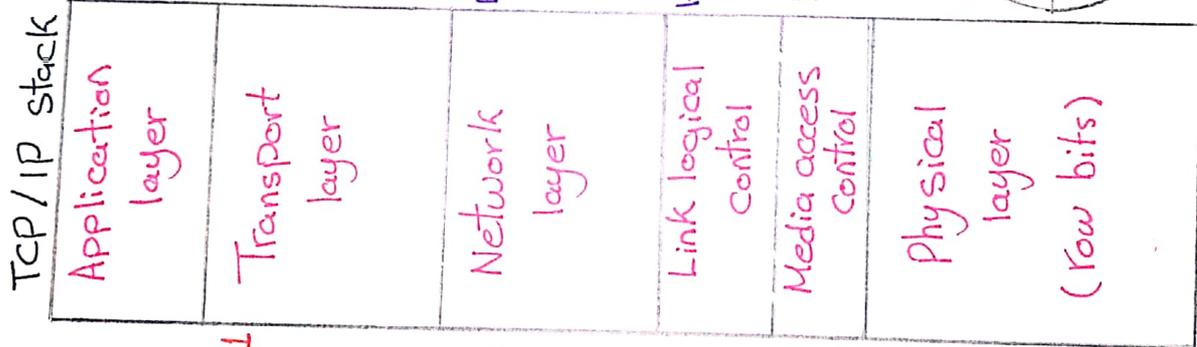 TCP/IP stack
Application
layer
Transport
layer
Network
layer
Link logical
control
Media access
control
Physical
layer
(row bits)